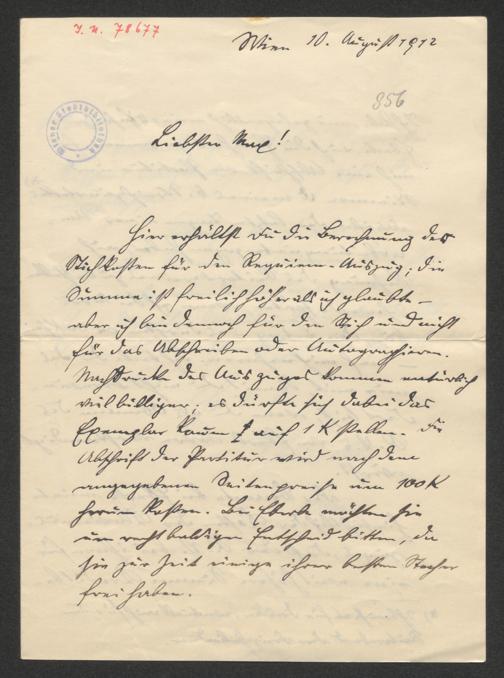 J. N. 78677
Wien 10. August 1912
956
Wiener Stadtbibliothek
Liebster Max!
Hier erhältst Du die Berechnung der
Stichkosten für den Requiem-Auszug; die
Summe ist freilich höher als ich glaubte –
aber ich bin dennoch für den Stich und nicht
für das Abschreiben oder Autographieren.
Nachdrucke des Auszuges kommen natürlich
viel billiger; es dürfte sich dabei das
Exemplar kaum auf 1 K stellen. Die
Abschrift der Partitur wird nach dem
angegebenen Seitenpreise um 100 K
herum kosten. Bei Eberle möchten sie
um recht baldigen Entscheid bitten, da
sie zur Zeit einige ihrer besten Stecher
frei haben.